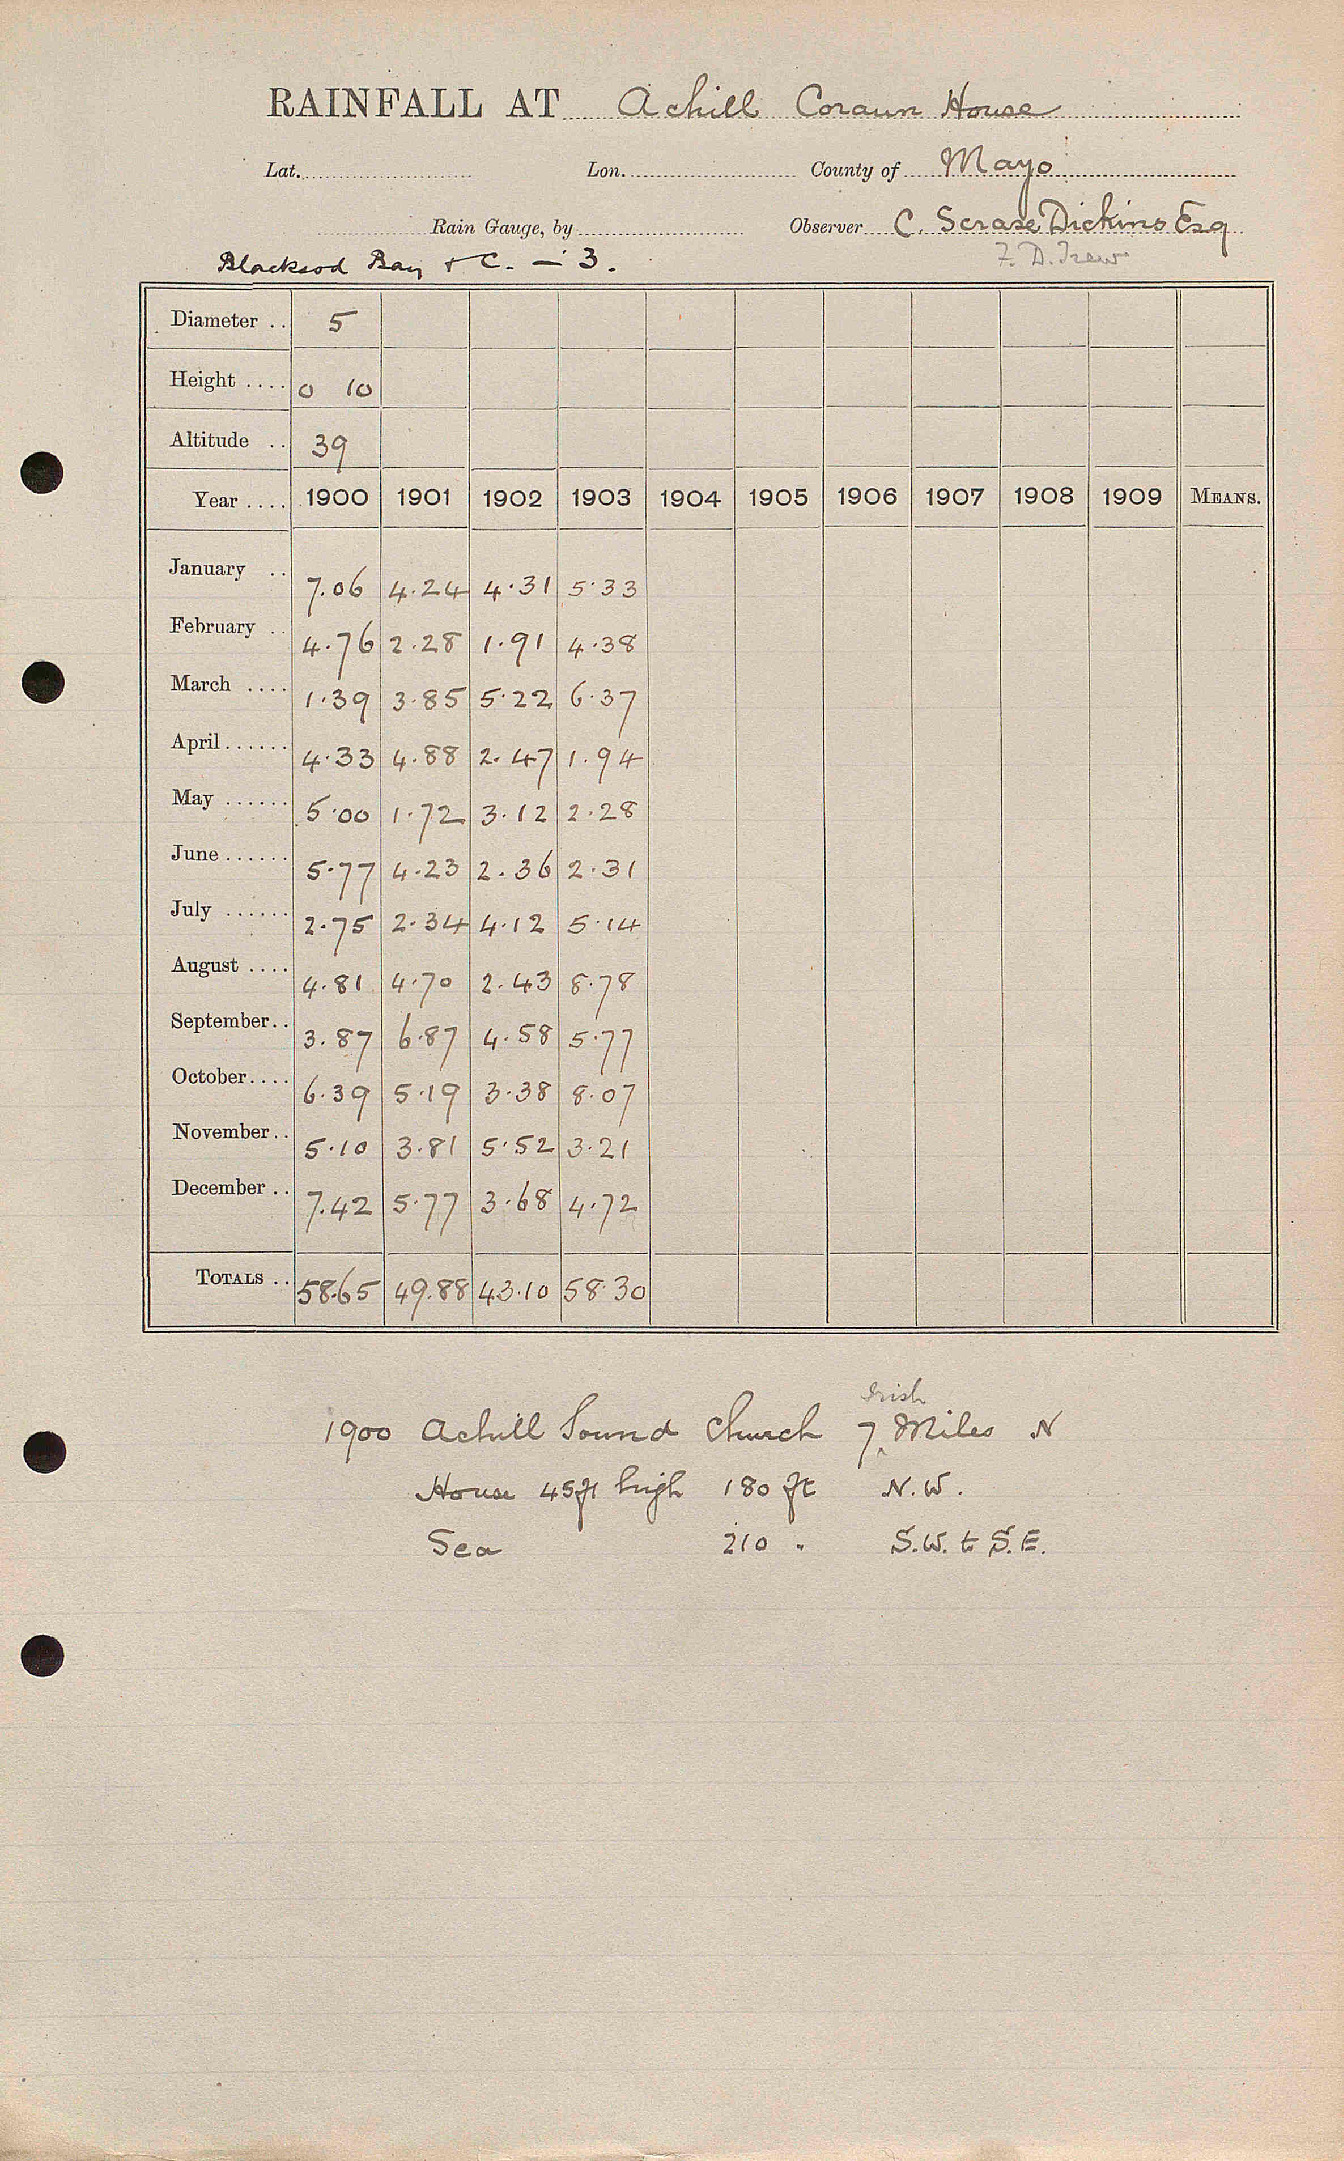 RAINFALL AT Achill Coraun House
Lat. Lon. County of Mayo
Rain Gauge, by Observer C. Scrase Dickins Esq
Blacksod Bay + C. — 3. F. D. Trew
Diameter .. 5
Height .... 0 10
Altitude .. 39
Year .... 1900 1901 1902 1903 1904 1905 1906 1907 1908 1909 MEANS.
January .. 7.06 4.24 4.31 5.33
February .. 4.76 2.28 1.91 4.38
March .... 1.39 3.85 5.22 6.37
April ...... 4.33 4.88 2.47 1.94
May ...... 5.00 1.72 3.12 2.28
June ...... 5.77 4.23 2.36 2.31
July ...... 2.75 2.34 4.12 5.14
August .... 4.81 4.70 2.43 8.78
September .. 3.87 6.87 4.58 5.77
October .... 6.39 5.19 3.38 8.07
November .. 5.10 3.81 5.52 3.21
December .. 7.42 5.77 3.68 4.72
TOTALS .. 58.65 49.88 43.10 58.30
Irish
1900 Achill Sound Church 7 ‸ Miles N
House 45ft high 180 ft N.W.
Sea 210 " S.W. to S.E.